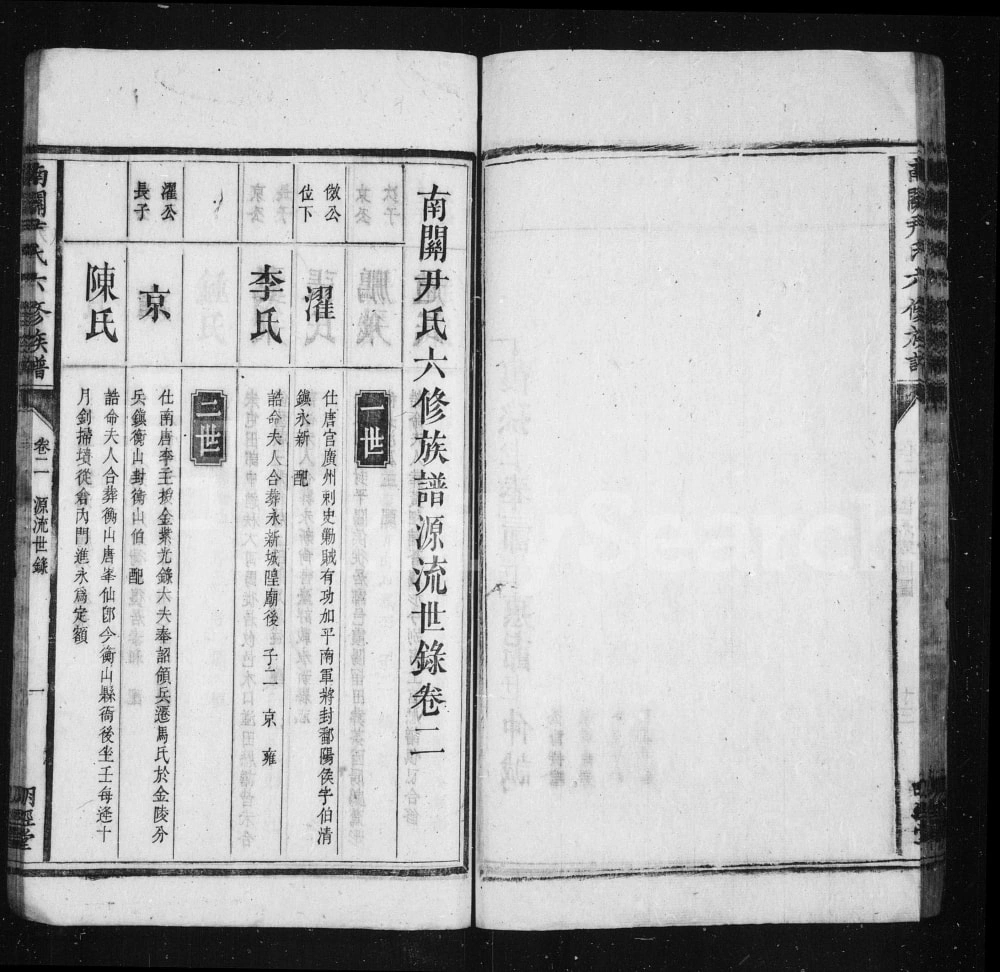 南關尹氏六修族譜源流世錄卷二
一世
倣公
位下
濯
仕唐官廣州刺史勦賊有功加平南軍將封鄱陽侯字伯清
鎮永新 配
李氏
誥命夫人合葬永新城隍廟後 子二 京 雍
二世
濯公
長子
京
仕南唐李王授金紫光錄大夫奉詔領兵遷馬氏於金陵分
兵鎮衡山封衡山伯 配
陳氏
誥命夫人合葬衡山唐峯仙郎今衡山縣衙後坐壬每逢十
月剑掃墳從倉內門進永爲定額
南關尹氏六修族譜
卷二 源流世錄
一
明經堂